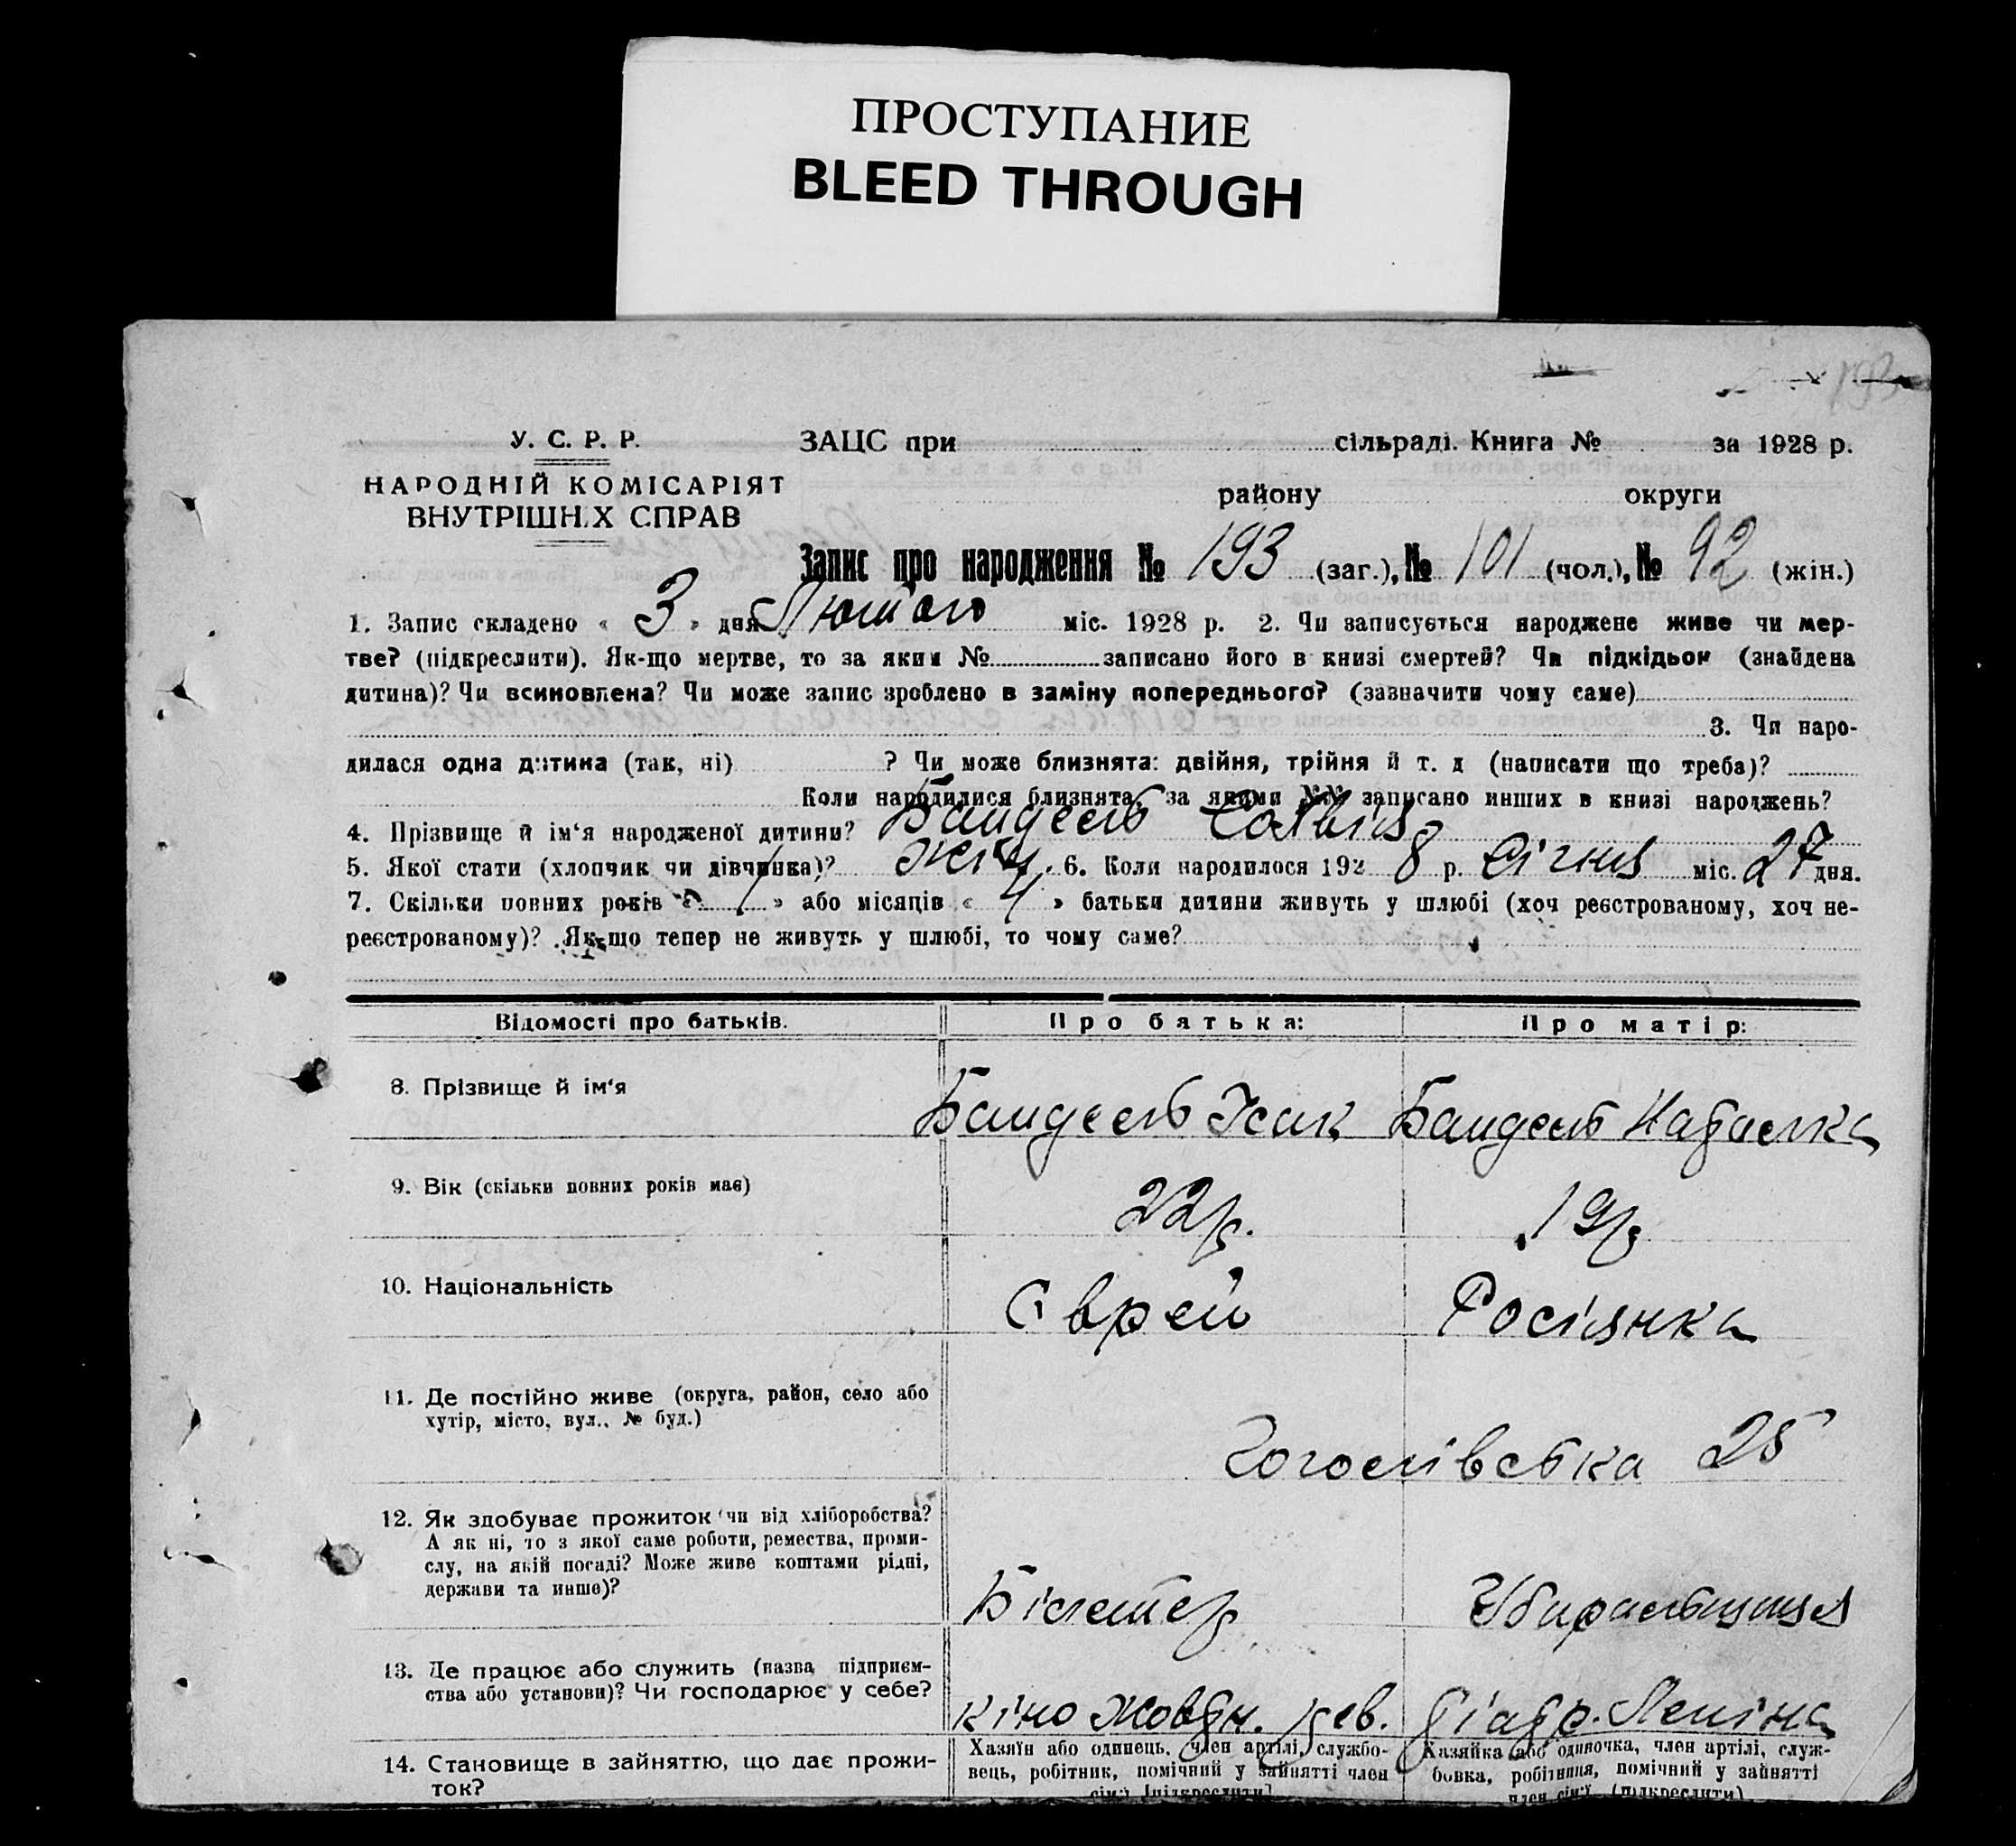 ПРОСТУПАНИЕ
BLEED THROUGH
193
У. С. Р. Р.
НАРОДНІЙ КОМІСАРІЯТ
ВНУТРІШНІХ СПРАВ
ЗАЦС при сільраді. Книга № за 1928 р.
району округи
Запис про народження № 193 (заг.), № 101 (чол.), № 92 (жін.)
1. Запис складено « 3 » дня Лютого міс. 1928 р. 2. Чи записується народжене живе чи мер-
тве? (підкреслити). Як-що мертве, то за яким № записано його в книзі смертей? Чи підкідьок (знайдена
дитина)? Чи всиновлена? Чи може запис зроблено в заміну попереднього? (зазначити чому саме)
3. Чи наро-
дилася одна дитина (так, ні) ? Чи може близнята: двійня, трійня й т. д (написати що треба)?
Коли народилися близнята, за якими №№ записано инших в книзі народжень?
4. Прізвище й ім‘я народженої дитини?
5. Якої стати (хлопчик чи дівчинка)? жін. 6. Коли народилося 192 8 р. Січня міс. 27 дня.
7. Скільки повних років « 1 » або місяців « 4 » батьки дитини живуть у шлюбі (хоч реєстрованому, хоч не-
реєстрованому)? Як-що тепер не живуть у шлюбі, то чому саме?
Відомості про батьків. Про батька: Про матір:
8. Прізвище й ім‘я Ісак
9. Вік (скільки повних років має) 22 р. 19 р.
10. Національність Єврей Росіянка
11. Де постійно живе (округа, район, село або
хутір, місто, вул., № буд.)
Гоголівська 25
12. Як здобуває прожиток чи від хліборобства?
А як ні, то з якої саме роботи, ремества, проми-
слу, на якій посаді? Може живе коштами рідні,
держави та инше)?
Білетер
13. Де працює або служить (назва підприєм-
ства або установи)? Чи господарює у себе?
кіно Жовтн. рев. Театр. Леніна
14. Становище в зайняттю, що дає прожи-
ток?
Хазяїн або одинець, член артілі, службо-
вець, робітник, помічний у зайнятті член
сім‘ї (підкреслити)
Хазяйка або одиночка, член артілі, служ-
бовка, робітниця, помічний у зайнятті
член сім‘ї (підкреслити)